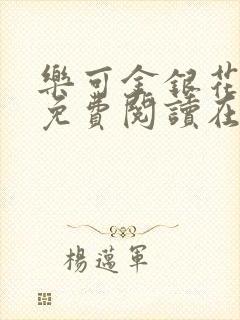 樂可金銀花
免費閱讀在
楊邁軍